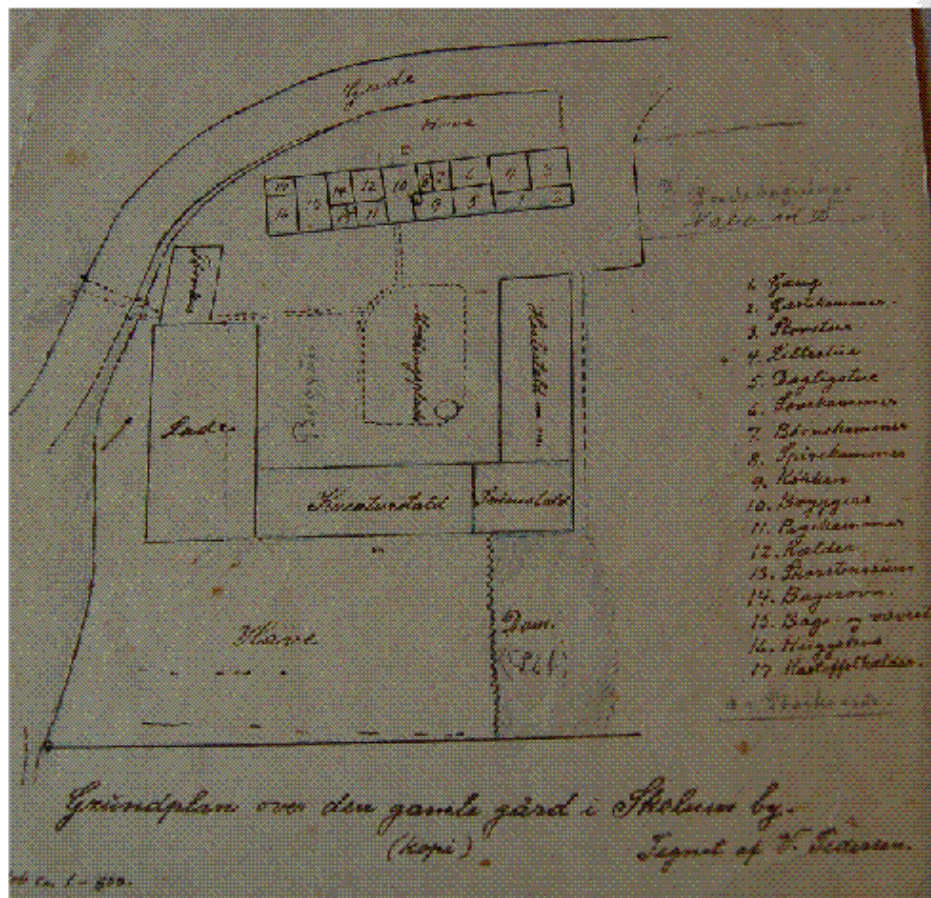 Gade
Have
17
16
15
14
13
12
11
10
8
7
6
9
5
4
3
1
2
Nabo
Lade
Hestestald
Kreaturstald
Svinestald
Have
Dam.
1. Gang.
2. Gæstekammer.
3. Storstue
4. Lillestue
5. Dagligstue
6. Sovekammer
7. Børnekammer
8. Spisekammer
9. Køkken
10. Bryggers
11. Pigekammer
12. Kælder
13. Skorstensrum
14. Bagerovn.
15. Bage- og
16. Huggehus
17. Kartoffelkælder.
Grundplan over den gamle gård i Skelum by.
(kopi)
Tegnet af V. Pedersen.